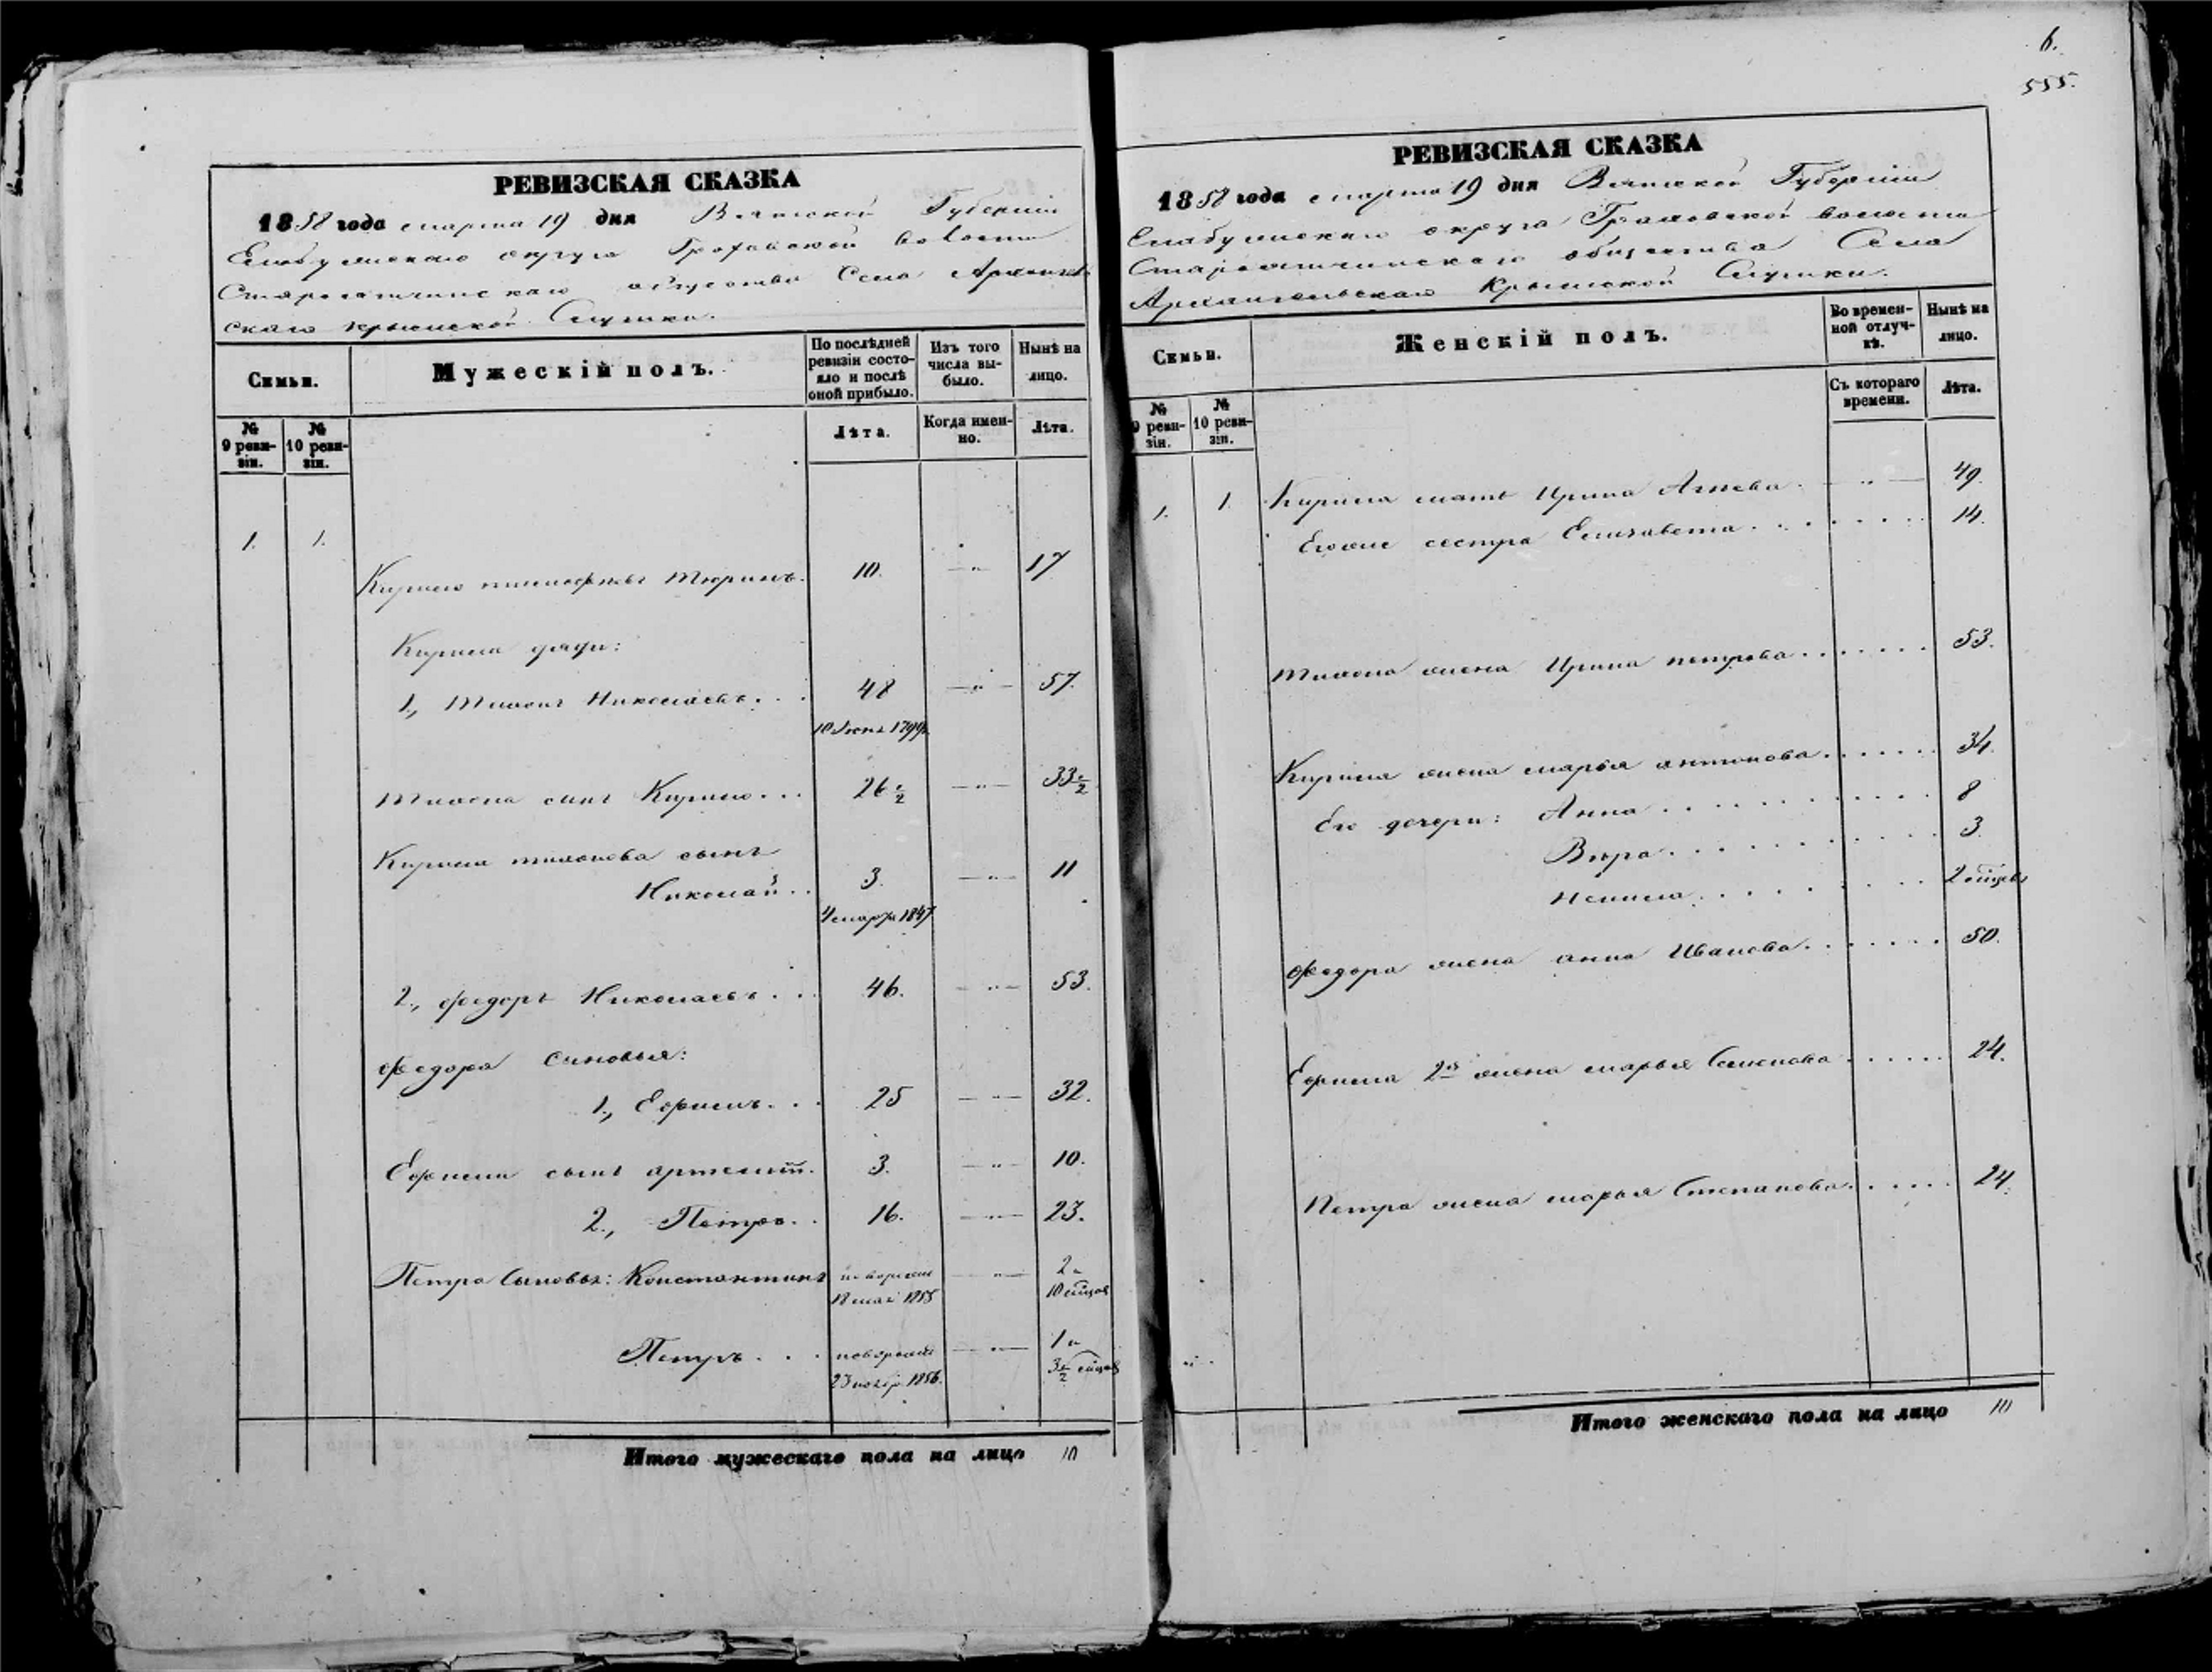 РЕВИЗСКАЯ СКАЗКА
1858 года марта 19 дня Вятской Губерніи
Елабужскаго округа Граховской волости
общества Села Архангель
скаго Крымской Слутки.
Семьи.
Мужескій полъ.
По послѣдней ревизіи состояло и послѣ оной прибыло.
Изъ того числа выбыло.
Нынѣ на лицо.
№ 9 ревизіи.
№ 10 ревизіи.
Лѣта.
Когда именно.
Лѣта.
1. 1.
Кирило Тюринъ. 10. — „ — 17
Кирила дяди:
1., Тихонъ Николаевъ... 48 — „ — 57.
1799
Тихона сынъ Кирило... 26 1/2 — „ — 33 1/2
Кирила Тихонова сынъ
Николай.. 3. — „ — 11
4 марта 1847
2., Федоръ Николаевъ... 46. — „ — 53.
Федора Сыновья:
1., Ефимъ... 25 — „ — 32.
Ефима сынъ Артемій. 3. — „ — 10.
2., Петръ.. 16. — „ — 23.
Петра Сыновья: Константинъ новорожд — „ — 2 и
18 мая 1855 10 мѣцов
Петръ... новорожд — „ — 1 и
23 ноября 1856. 3 1/2 мѣцов
Итого мужескаго пола на лицо 10
6.
555.
РЕВИЗСКАЯ СКАЗКА
1858 года марта 19 дня Вятской Губерніи
Елабужскаго округа Граховской волости
общества Села
Архангельскаго Крымской Слутки.
Семьи.
Женскій полъ.
Во временной отлучкѣ.
Нынѣ на лицо.
№ 9 ревизіи.
№ 10 ревизіи.
Съ котораго времени.
Лѣта.
1. 1 Кирила мать Ирина. — „ — 49.
Его же сестра Елизавета 14.
Тихона жена Ирина Петрова 53.
Кирила жена Марья Антонова 34.
Его дочери: Анна 8
Вѣра 3.
2 мѣцев
Федора жена Анна Иванова 50.
Ефима 2я жена Марья Семенова 24.
Петра жена Марья Степанова 24.
Итого женскаго пола на лицо 10